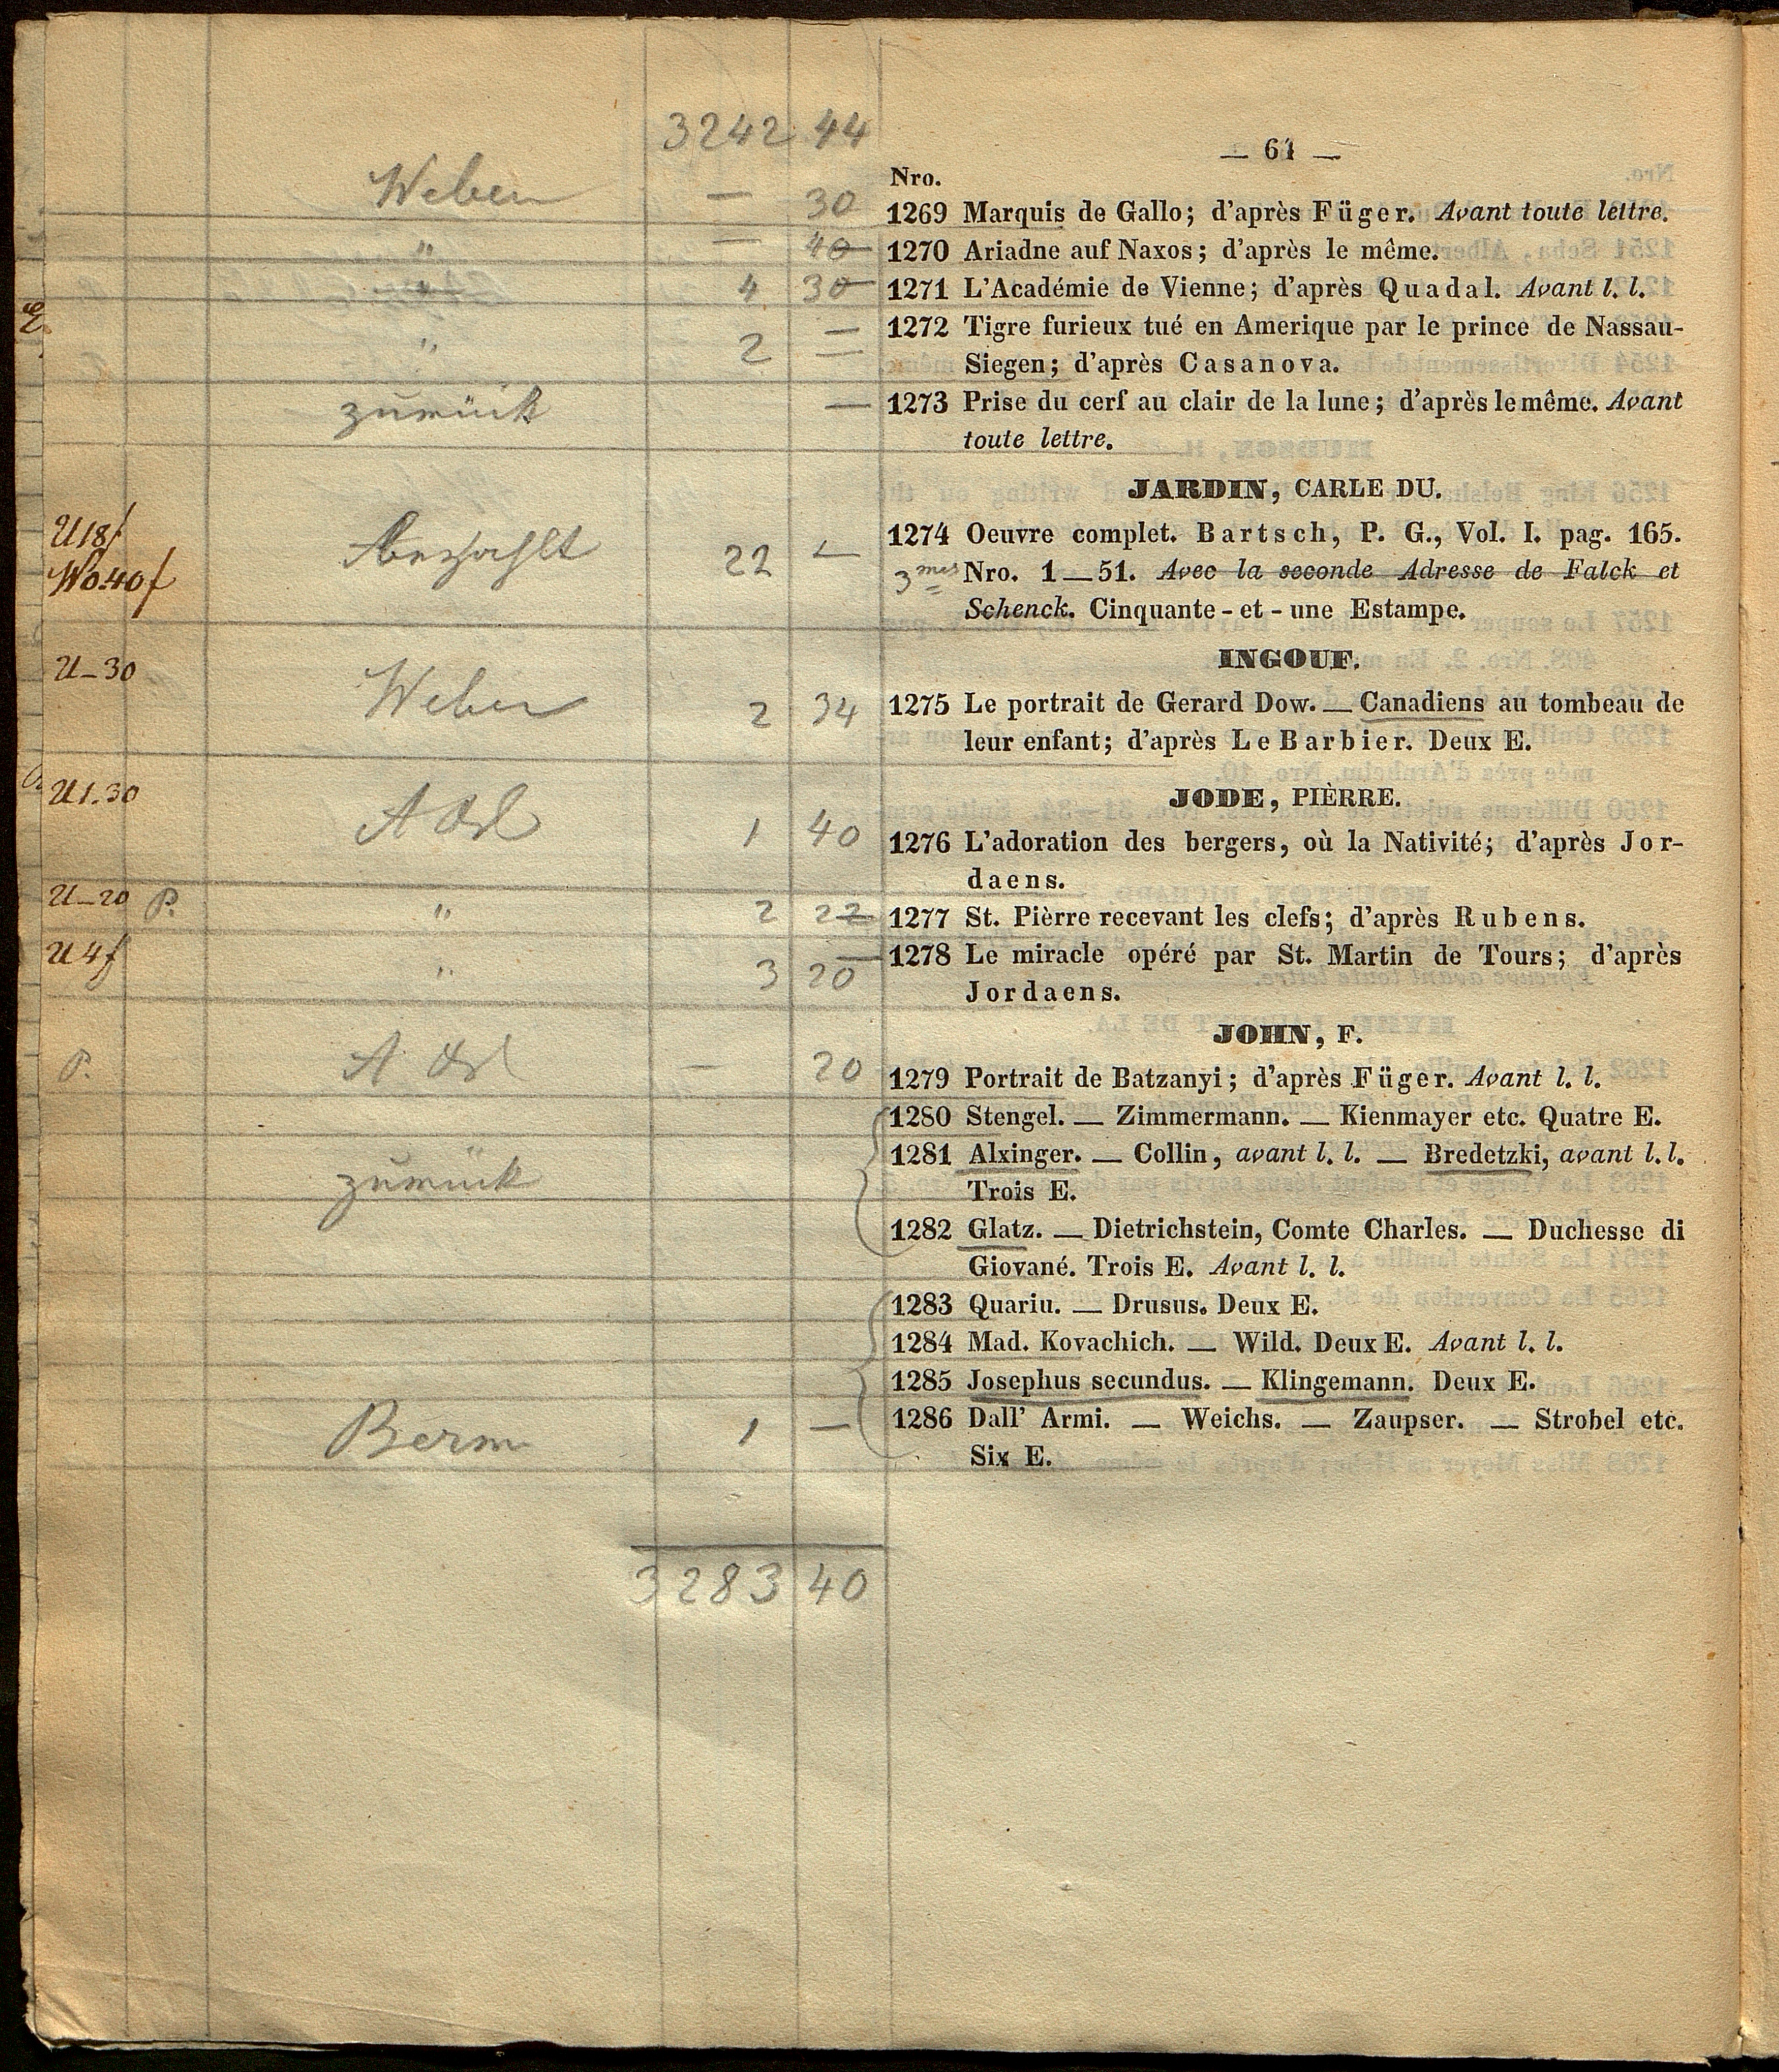 3242 44
— 61 —
Nro.
Weber — 30 1269 Marquis de Gallo; d'après Füger. Avant toute lettre.
" — 40 1270 Ariadne auf Naxos; d'après le même.
" 4 30 1271 L'Académie de Vienne; d'après Quadal. Avant l. l.
" 2 — 1272 Tigre furieux tué en Amerique par le prince de Nassau-
Siegen; d'après Casanova.
zurück — 1273 Prise du cerf au clair de la lune; d'après le même. Avant
toute lettre.
JARDIN, CARLE DU.
U 18f 22 — 1274 Oeuvre complet. Bartsch, P. G., Vol. I. pag. 165.
Wo.40f 3mes Nro. 1—51. Avec la seconde Adresse de Falck et
Schenck. Cinquante-et-une Estampe.
INGOUF.
U—30 Weber 2 34 1275 Le portrait de Gerard Dow. — Canadiens au tombeau de
leur enfant; d'après Le Barbier. Deux E.
JODE, PIÈRRE.
U 1.30 1 40 1276 L'adoration des bergers, où la Nativité; d'après Jor-
daens.
U—20 P. " 2 22 1277 St. Pièrre recevant les clefs; d'après Rubens.
U 4f " 3 20 1278 Le miracle opéré par St. Martin de Tours; d'après
Jordaens.
JOHN, F.
P. — 20 1279 Portrait de Batzanyi; d'après Füger. Avant l. l.
1280 Stengel. — Zimmermann. — Kienmayer etc. Quatre E.
zurück 1281 Alxinger. — Collin, avant l. l. — Bredetzki, avant l. l.
Trois E.
1282 Glatz. — Dietrichstein, Comte Charles. — Duchesse di
Giované. Trois E. Avant l. l.
1283 Quariu. — Drusus. Deux E.
1284 Mad. Kovachich. — Wild. Deux E. Avant l. l.
1285 Josephus secundus. — Klingemann. Deux E.
Berm 1 — 1286 Dall' Armi. — Weichs. — Zaupser. — Strobel etc.
Six E.
3283 40